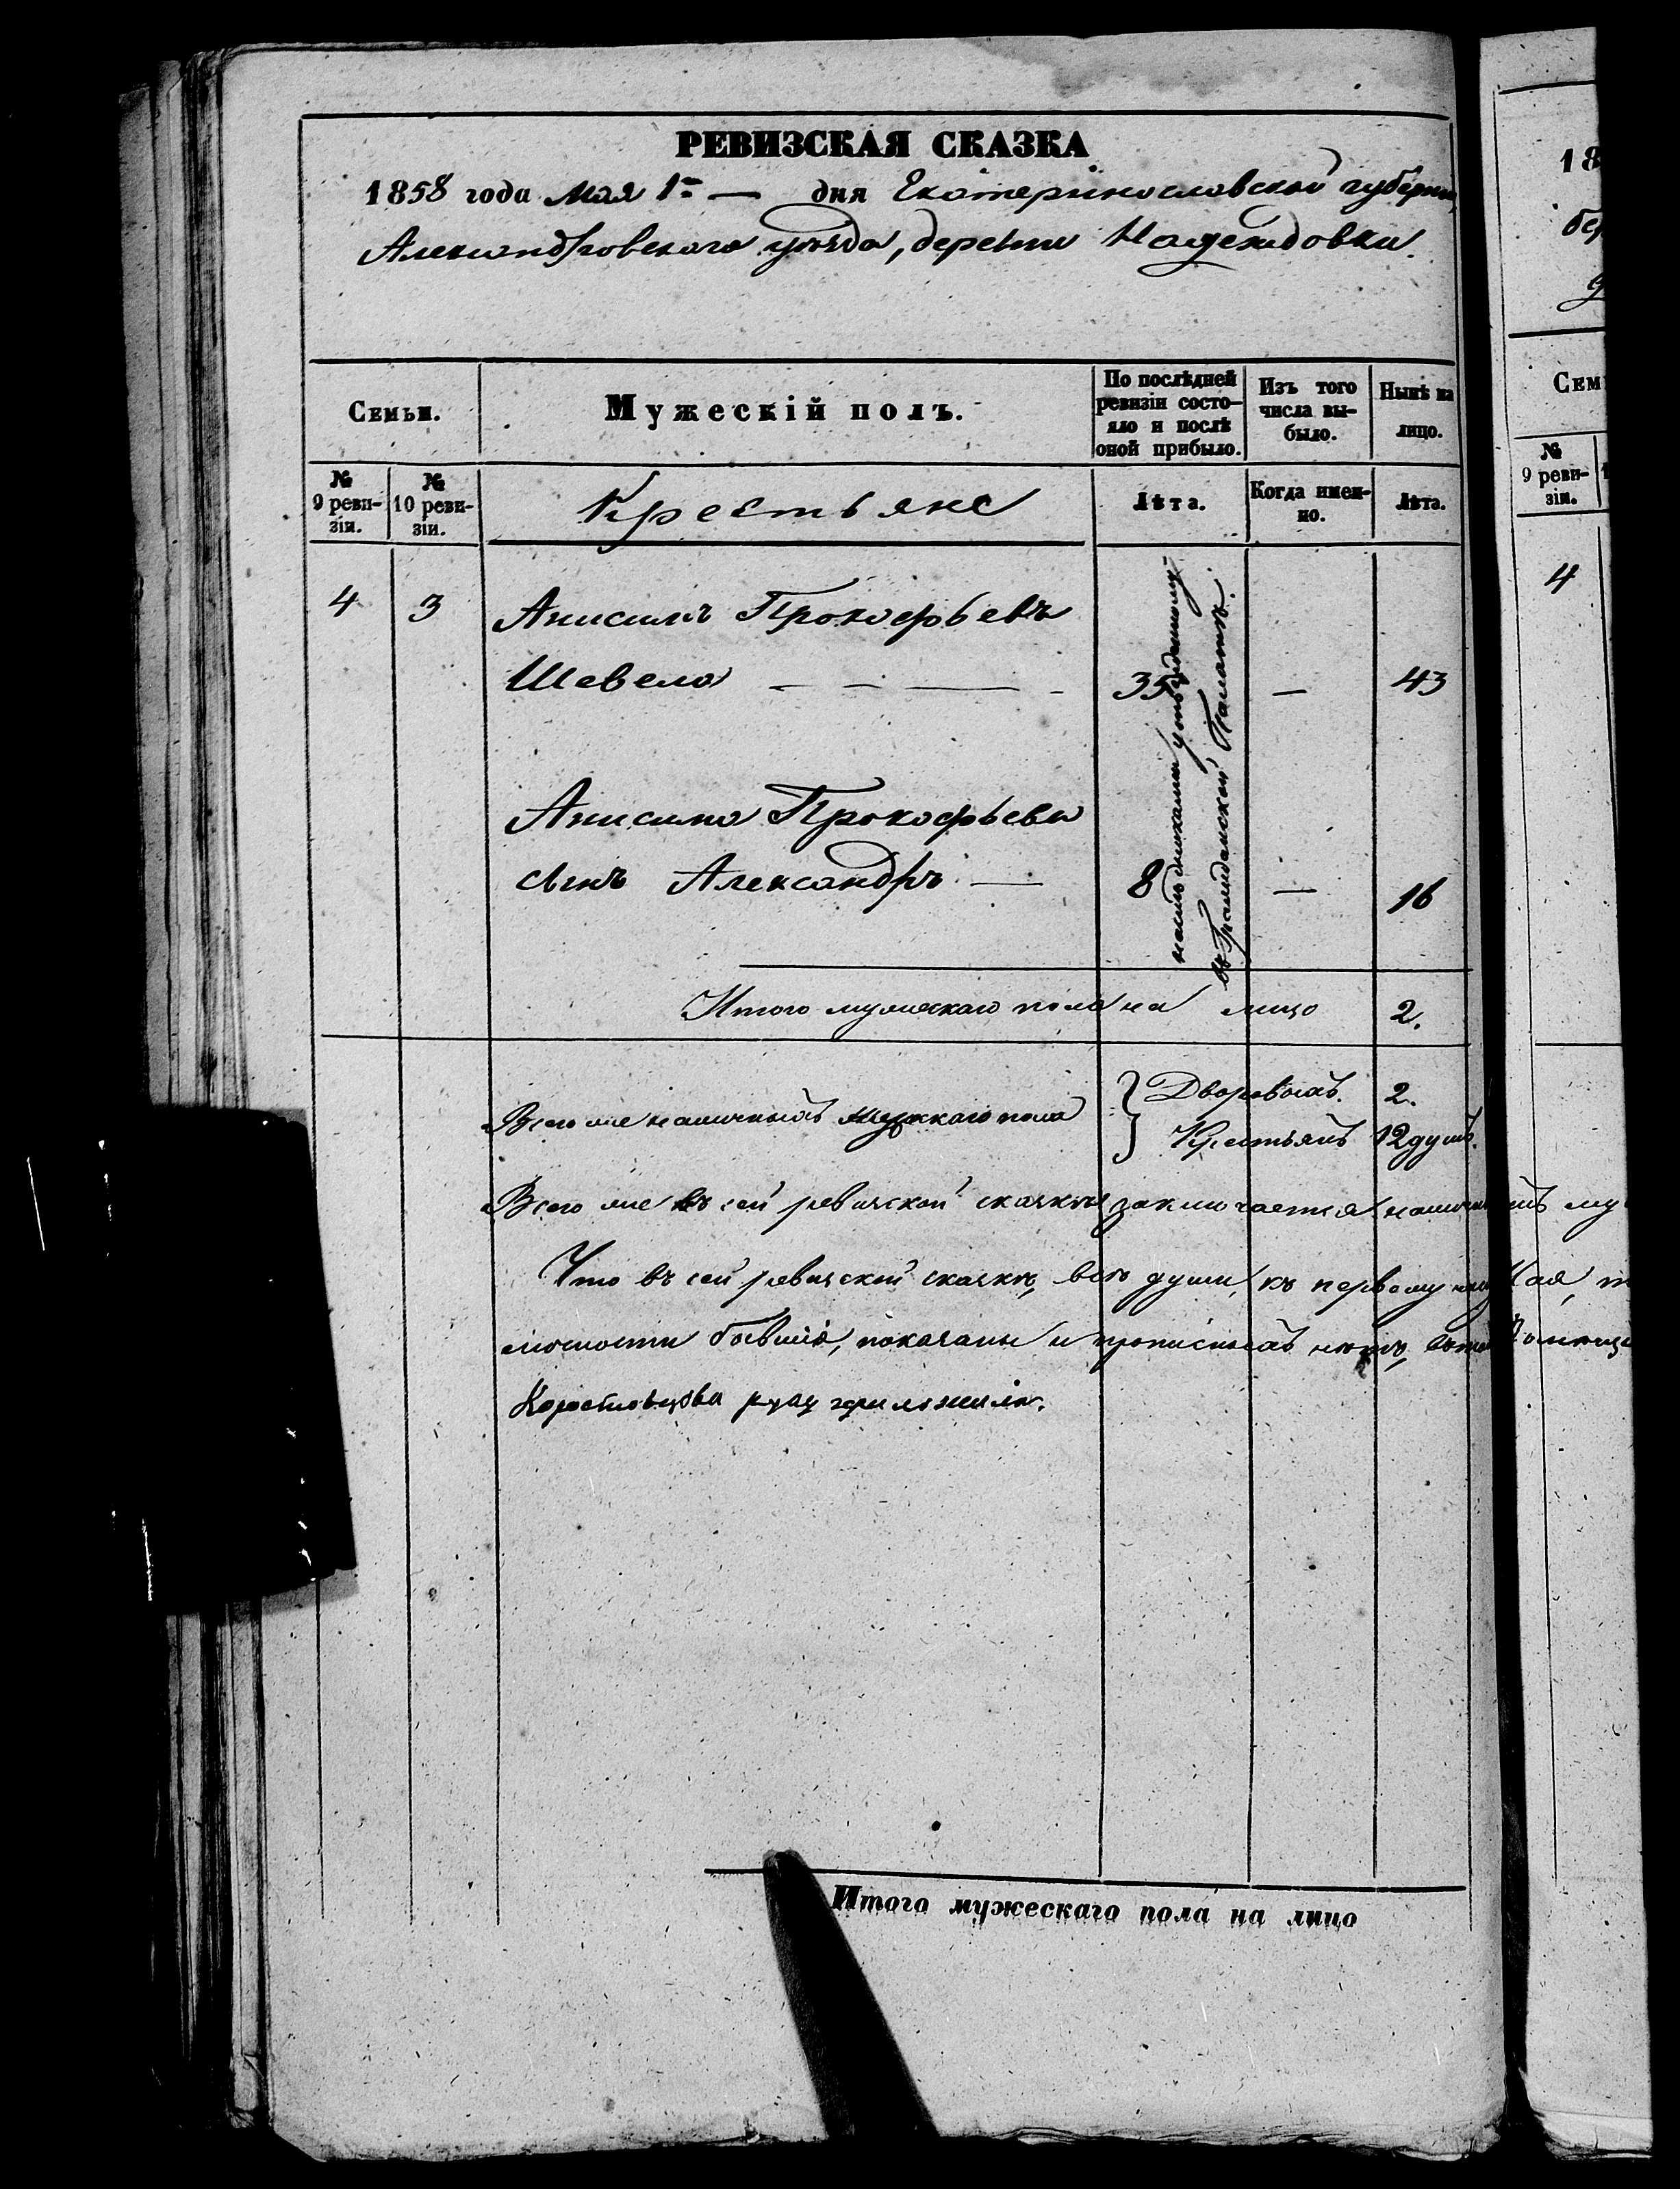 РЕВИЗСКАЯ СКАЗКА
1858 года Мая 1го — дня Екатеринославской губерніи,
Александровскаго уѣзда, деревни Надеждовки.
Семьи.
Мужескій полъ.
По послѣдней ревизіи состо-
яло и послѣ
оной прибыло.
Изъ того
числа вы-
было.
Нынѣ на
лицо.
№
9 реви-
зіи.
№
10 реви-
зіи.
Крестьяне
Лѣта.
Когда имен-
но.
Лѣта.
4 3 Анисимъ Прокофьевъ
Шевела — — — 35 — 43
Анисима Прокофьева
сынъ Александръ — 8 — 16
утвержденному
въ Гражданской Палатѣ.
Итого мужескаго пола на лицо 2.
Всего же наличныхъ мужскаго пола
Дворовыхъ. 2.
Крестьянъ 12 душъ.
Всего же въ сей ревизской сказкѣ заключается
Что въ сей ревизской сказкѣ, всѣ души, къ первому Мая,
бывшіе, показаны и прописныхъ нѣтъ,
Коростовцова руку приложилъ.
Итого мужескаго пола на лицо
18
бер
Сем
№
9 реви-
зіи.
4